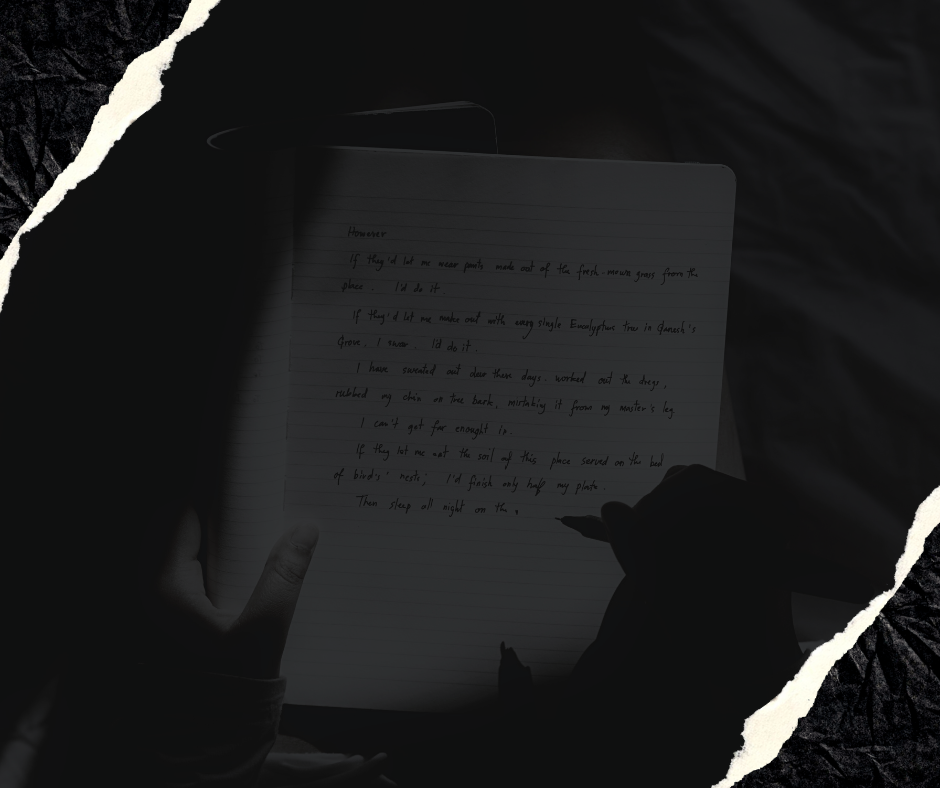 However
If they'd let me wear pants made out of the fresh-mown grass from the
place. I'd do it.
If they'd let me make out with every single Eucalyptus tree in Ganesh's
Grove, I swear. I'd do it.
I have sweated out dew them days. worked out the dregs,
rubbed my chin on tree bark, mistaking it from my master's leg
I can't get far enought in.
If they let me eat the soil of this place served on the bed
of bird's' nests; I'd finish only half my plate.
Then sleep all night on the